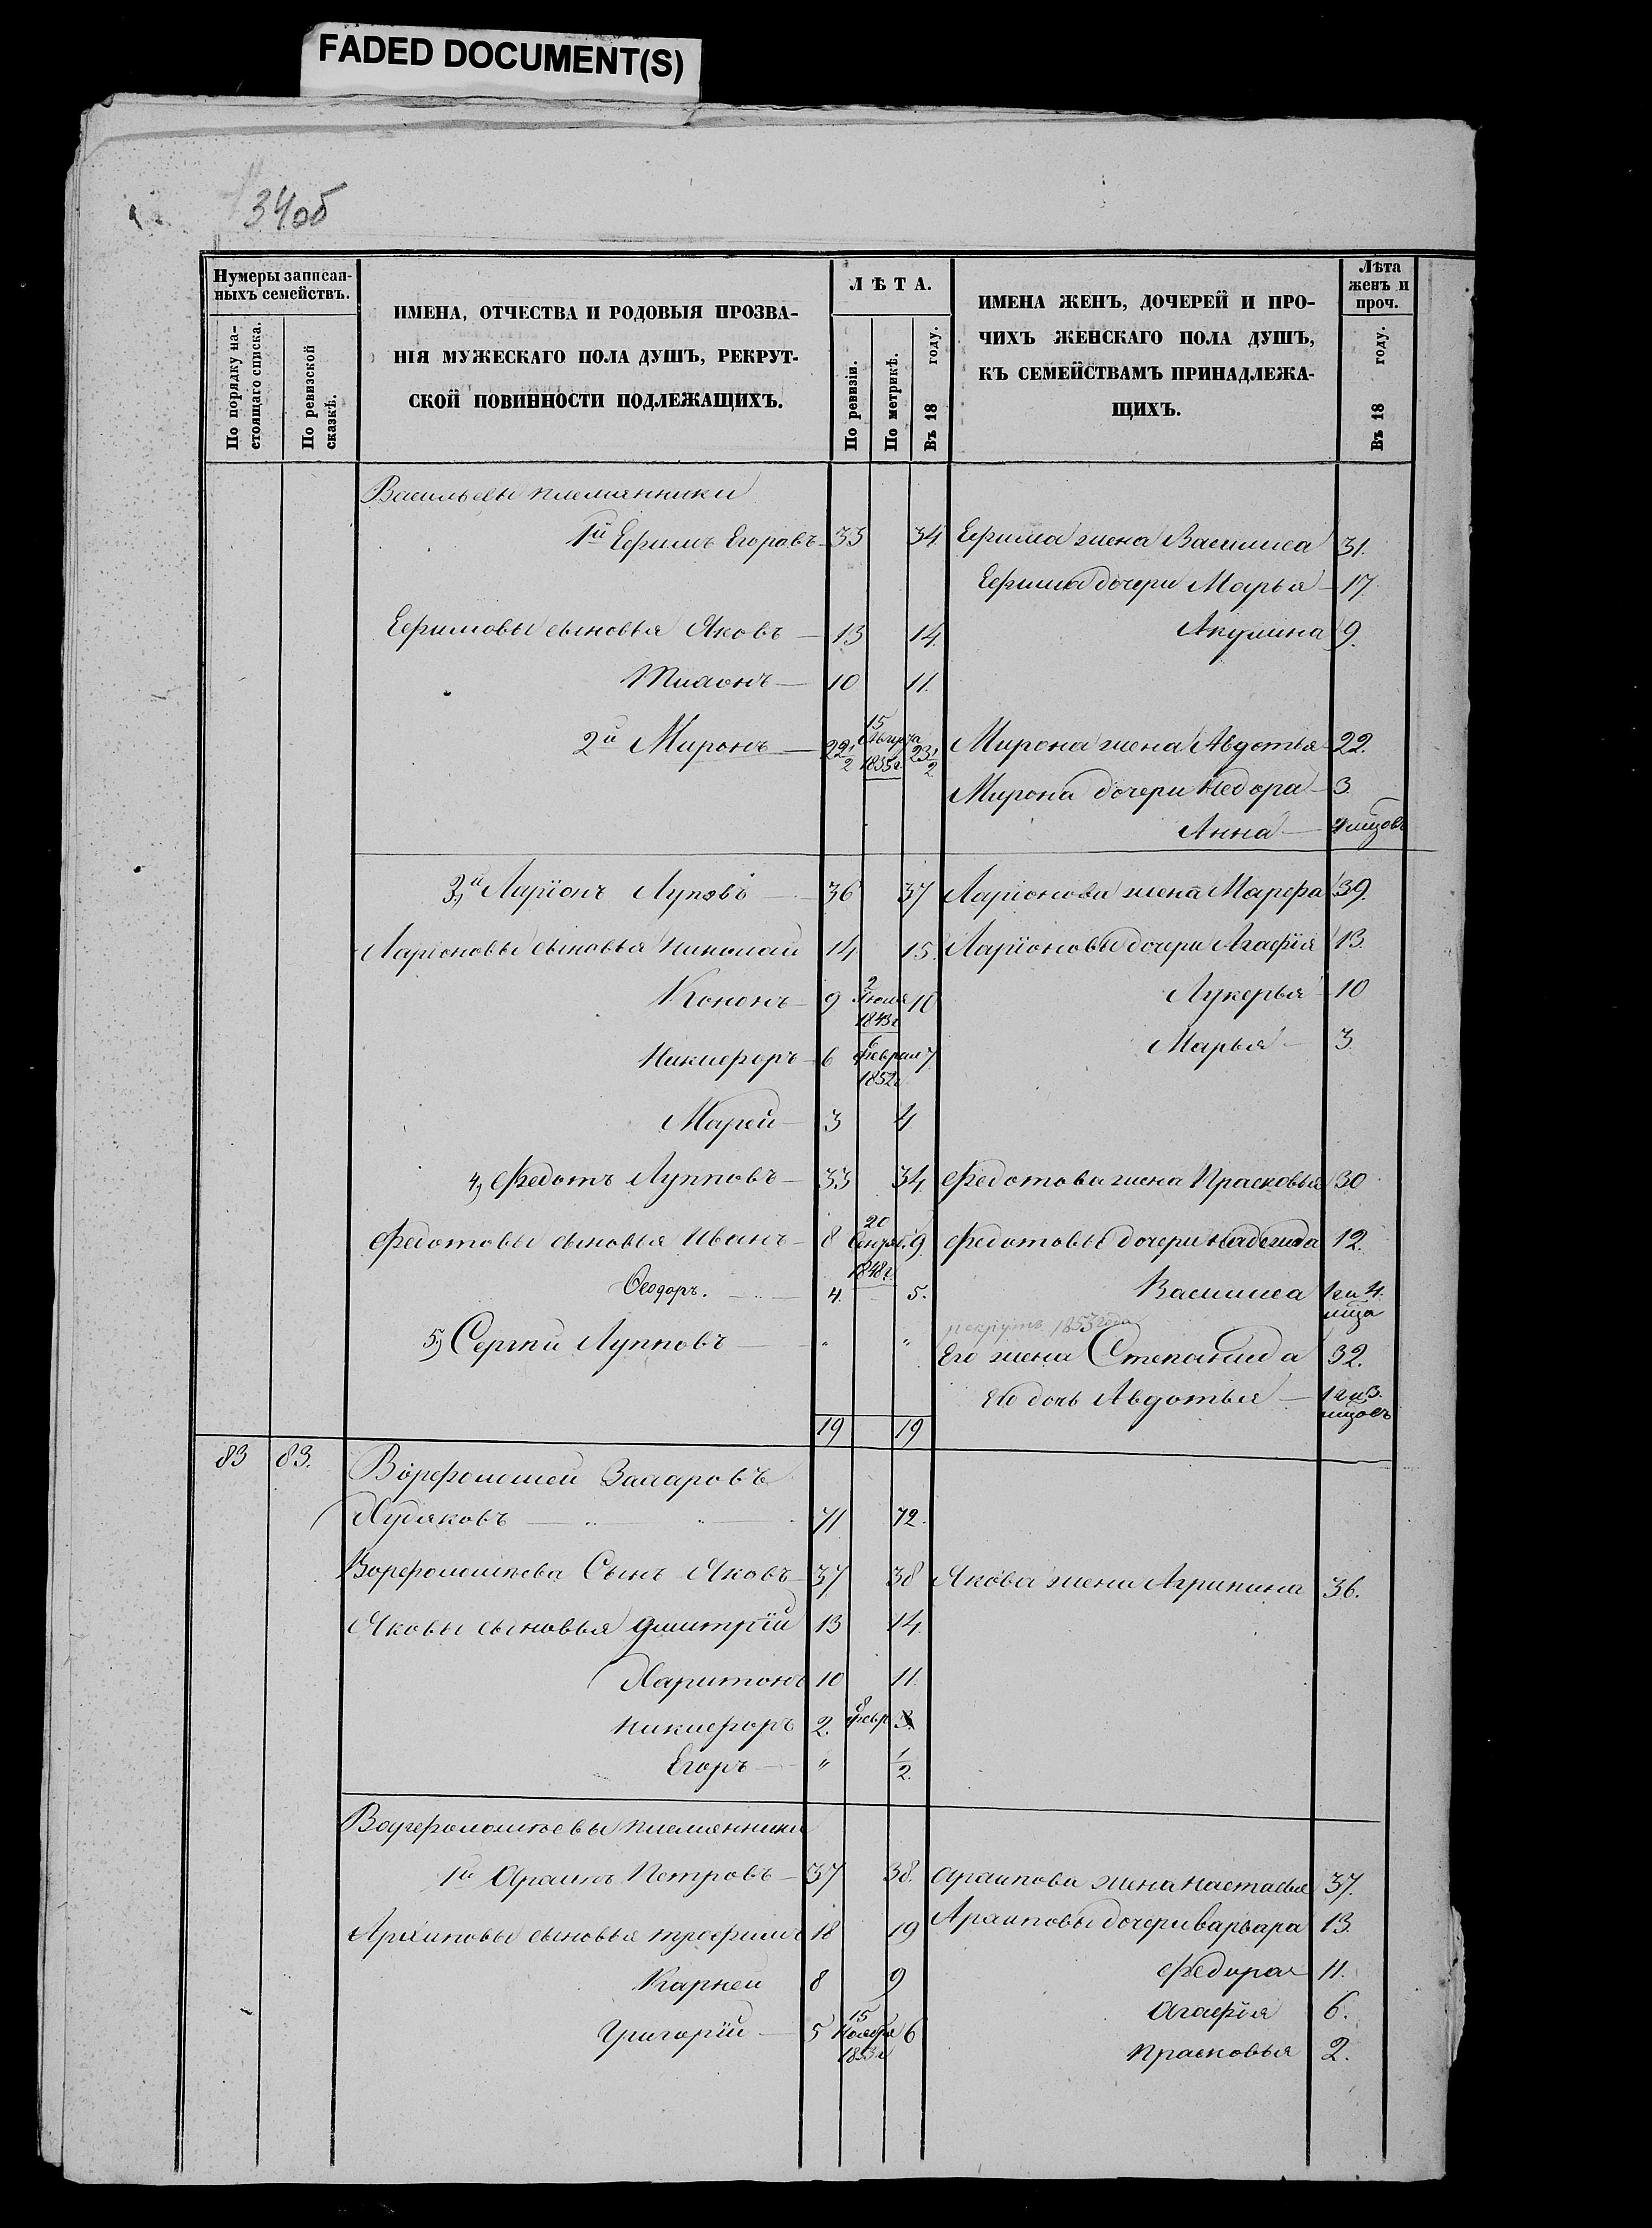 FADED DOCUMENT(S)
34об
Нумеры записан-
ныхъ семействъ.
По порядку на-
стоящаго списка.
По ревизской
сказкѣ.
ИМЕНА, ОТЧЕСТВА И РОДОВЫЯ ПРОЗВА-
НІЯ МУЖЕСКАГО ПОЛА ДУШЪ, РЕКРУТ-
СКОЙ ПОВИННОСТИ ПОДЛЕЖАЩИХЪ.
ЛѢТА.
По ревизіи.
По метрикѣ.
Въ 18 году.
ИМЕНА ЖЕНЪ, ДОЧЕРЕЙ И ПРО-
ЧИХЪ ЖЕНСКАГО ПОЛА ДУШЪ,
КЪ СЕМЕЙСТВАМЪ ПРИНАДЛЕЖА-
ЩИХЪ.
Лѣта
женъ и
проч.
Въ 18 году.
Васильевы племянники
1й Ефимъ Егоровъ 33 34 Ефима жена Василиса 31.
Ефима дочери Марья 17
Ефимовы сыновья Яковъ 13 14 Акулина 9.
10 11.
2й Миронъ 22 1/2 15 Августа 1835г 23 1/2 Мирона жена Авдотья 22
Мирона дочери Федора 3.
Анна
3,й Ларіонъ Луповъ 36 37 Ларіонова жена Марфа 39.
Ларіоновы сыновья Николай 14 15. Ларіоновы дочери Агафія 13.
Кононъ 9 2 1843г 10 Лукерья 10
Никифоръ 6 6 Феврал 1852г 7 Марья 3
3 4
4, Федотъ Лупповъ 33 34 Федотова жена Прасковья 30
Федотовы сыновья Иванъ 8 20 Сентяб. 1848г 9 Федотовы дочери Надежда 12.
Ѳеодоръ. 4. 5. Василиса 1 г и 4. мца
рекрутъ 1853 года
5) Сергѣй Лупповъ " " Его жена Степанида 32.
Его дочь Авдотья 1 г и 3. мцовъ
19 19
83 83. Ворфоломей Захаровъ
Худяковъ 71 72.
Ворфоломѣева Сынъ Яковъ 37 38 Якова жена Агрипина 36.
Яковы сыновья Дмитрій 13 14
Харитонъ 10 11.
Никифоръ 2. 8 февр 3.
Егоръ " 1/2
Ворфоломѣевы племянники
1й Архипъ Петровъ 37 38. Архипова жена Настасья 37.
Архиповы сыновья Трофимъ 18 19 Архиповы дочери Варвара 13.
Карней 8 9 Федора 11.
Агафія 6.
Григорій 5 15 Ноября 1853г 6
Прасковья 2.